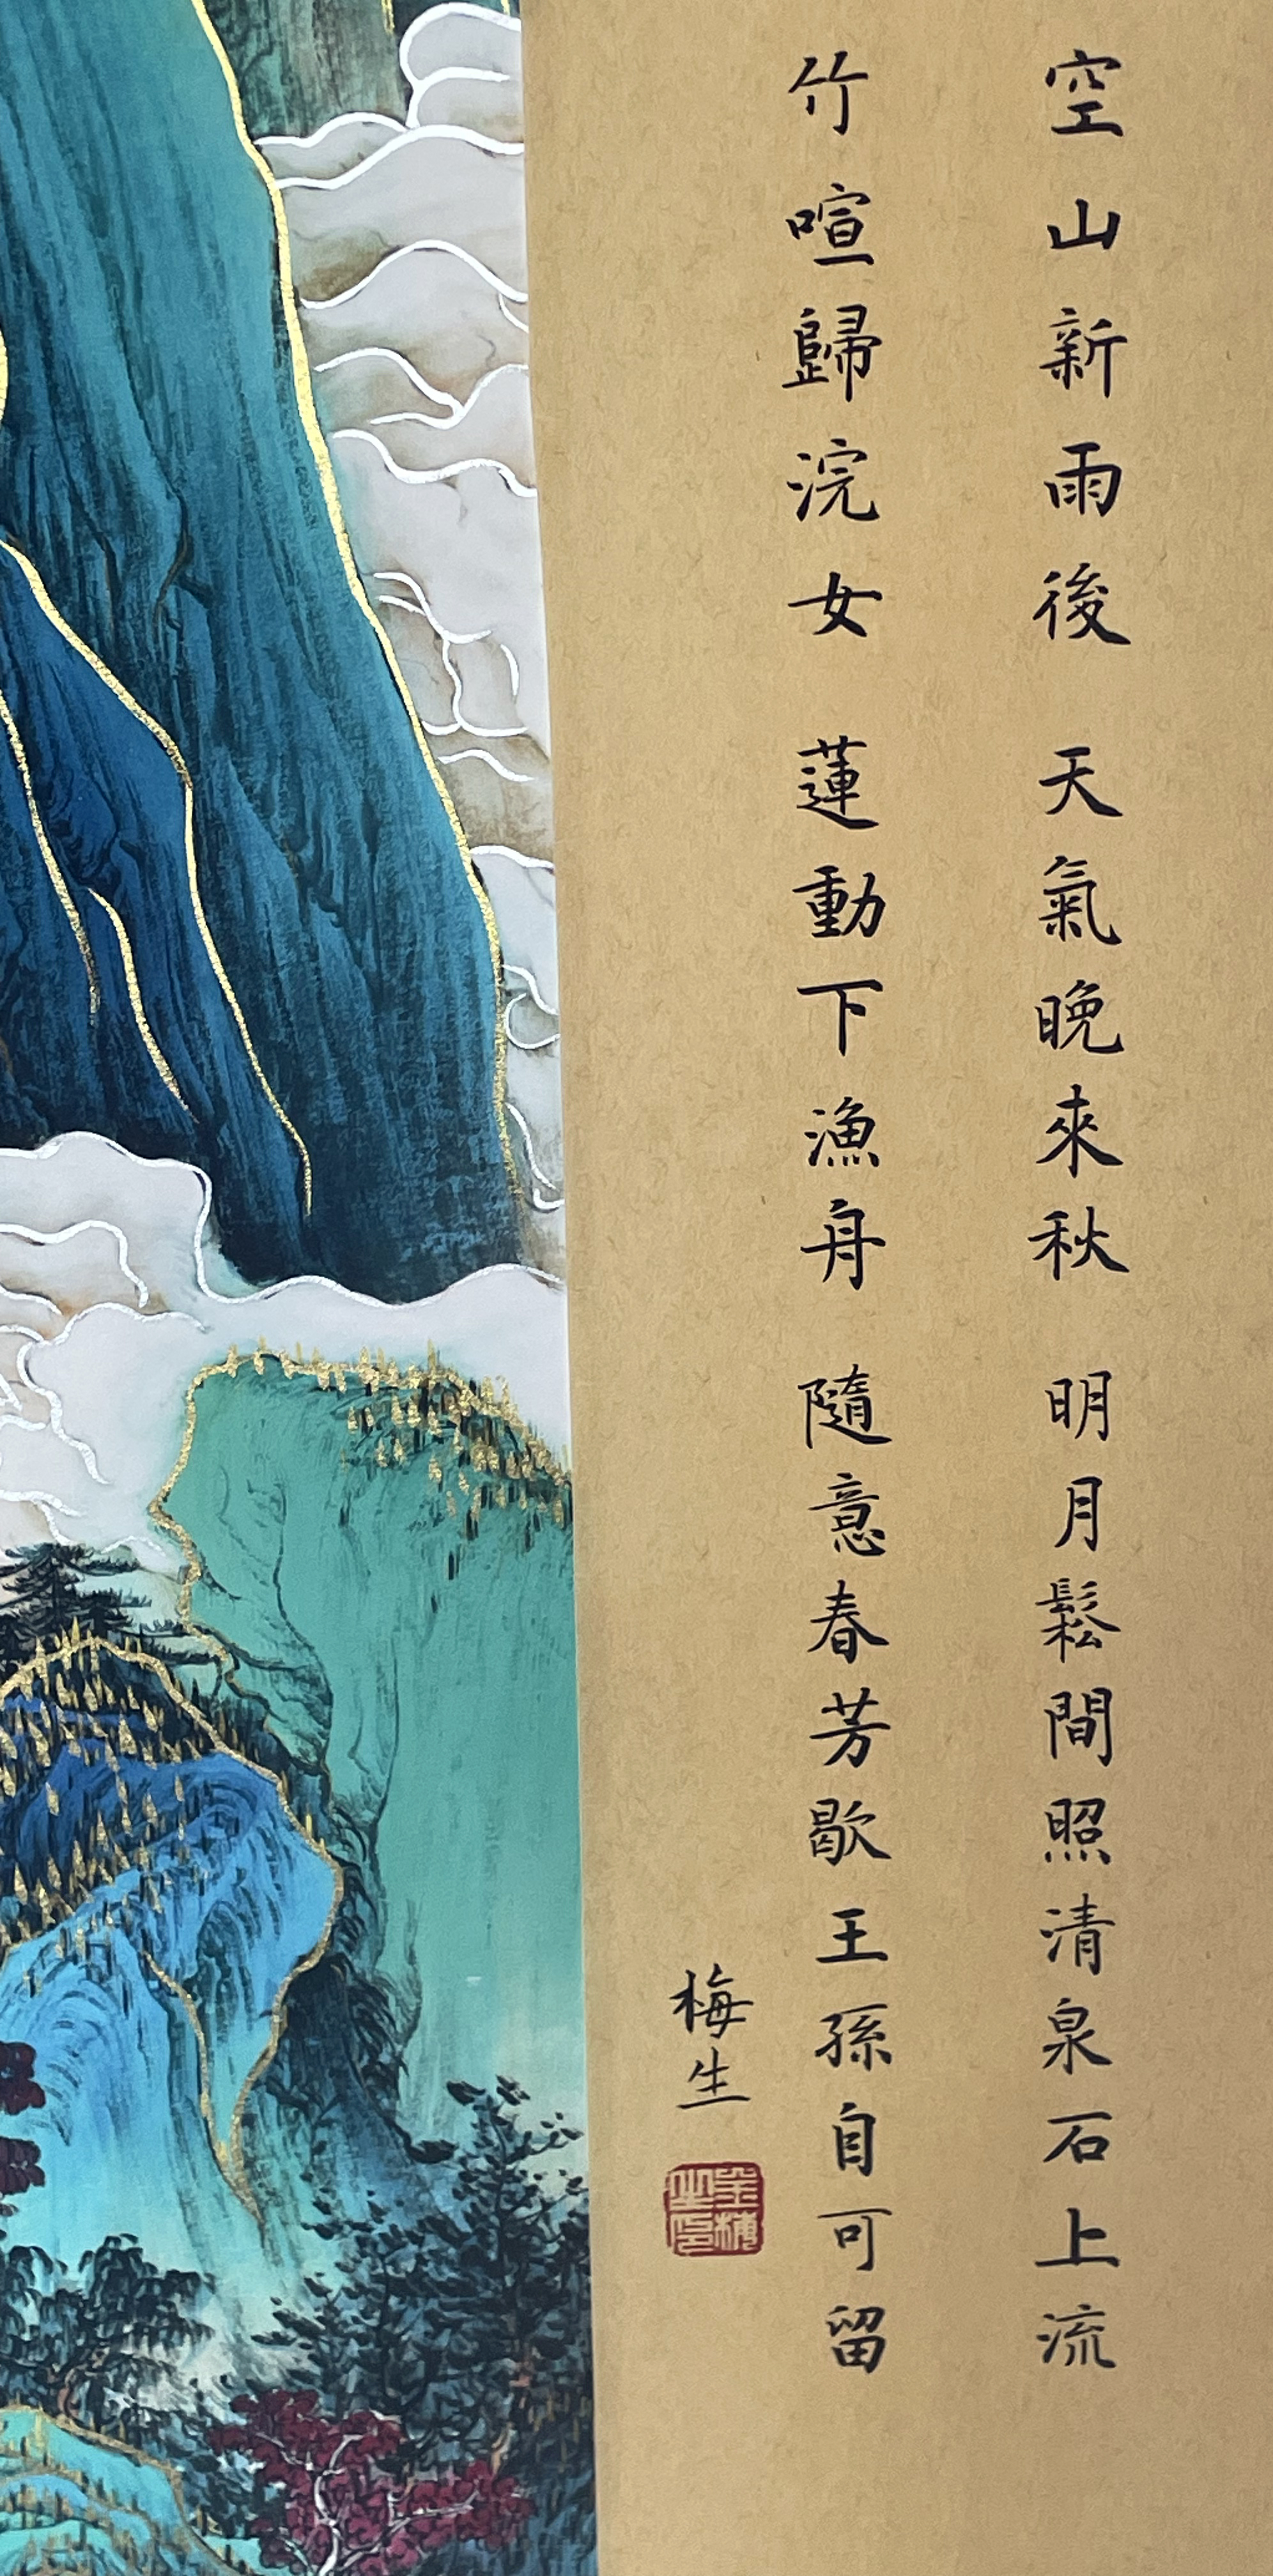 空山新雨後 天氣晚來秋 明月鬆間照清泉石上流
竹喧歸浣女 蓮動下漁舟 隨意春芳歇王孫自可留
梅生